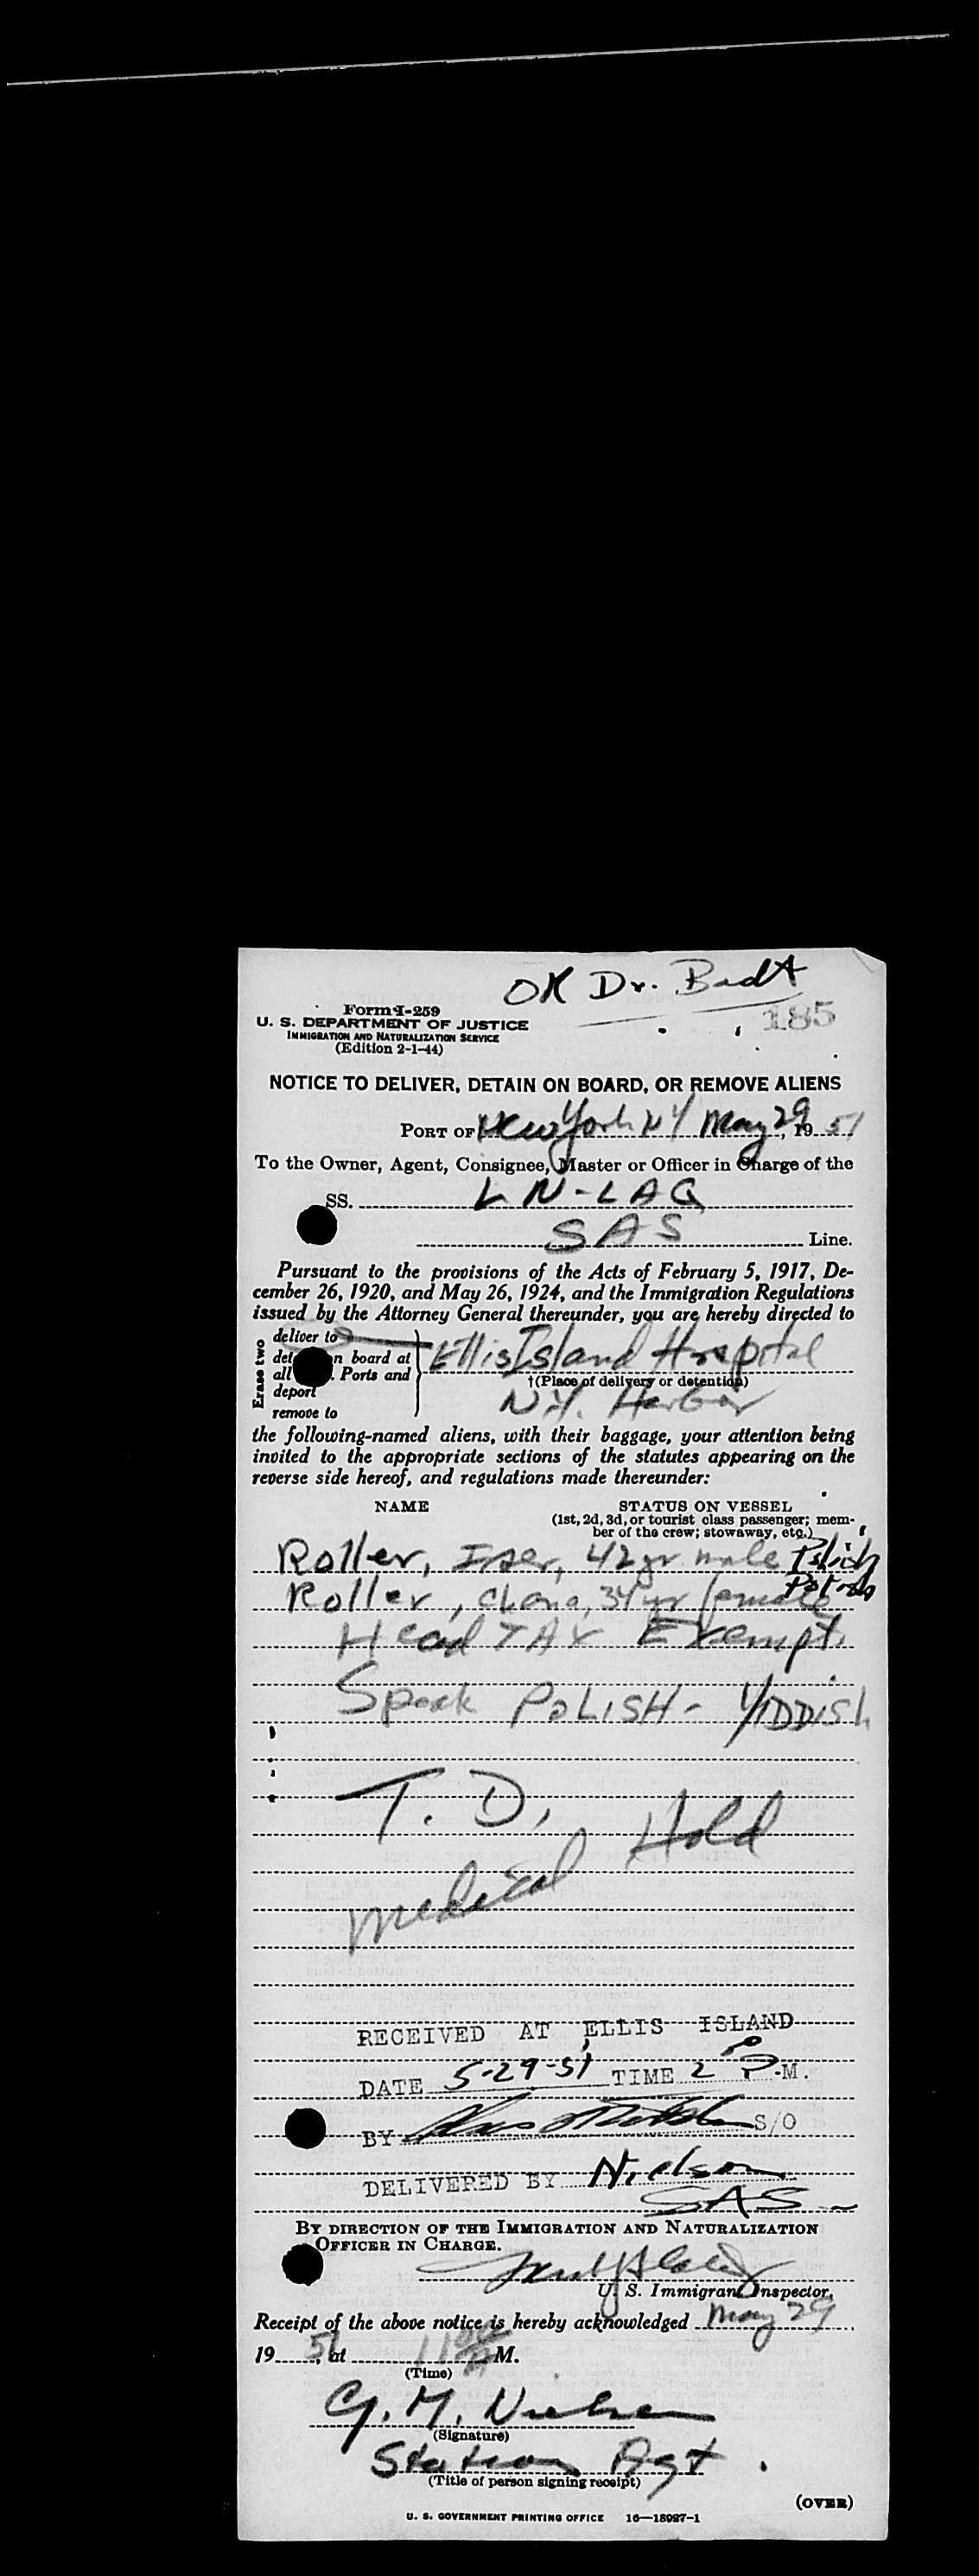 OK Dr. Badt
185
Form I-259
U. S. DEPARTMENT OF JUSTICE
IMMIGRATION AND NATURALIZATION SERVICE
(Edition 2-1-44)
NOTICE TO DELIVER, DETAIN ON BOARD, OR REMOVE ALIENS
PORT OF New York NY May 29, 19 51
To the Owner, Agent, Consignee, Master or Officer in Charge of the
SS. LN-LAG
SAS Line.
Pursuant to the provisions of the Acts of February 5, 1917, De-
cember 26, 1920, and May 26, 1924, and the Immigration Regulations
issued by the Attorney General thereunder, you are hereby directed to
Erase two
deliver to
board at Ellis Island Hospital
all Ports and †(Place of delivery or detention)
deport N.Y. Harbor
remove to
the following-named aliens, with their baggage, your attention being
invited to the appropriate sections of the statutes appearing on the
reverse side hereof, and regulations made thereunder:
NAME STATUS ON VESSEL
(1st, 2d, 3d, or tourist class passenger; mem-
ber of the crew; stowaway, etc.)
Roller, 42 yr male Polish
Roller, Chana, 34 yr female Polish
Head TAX Exempt
Speak POLISH - YIDDISH
T. D.
Medical Hold
RECEIVED AT ELLIS ISLAND
DATE 5-29-51 TIME 2 P.M.
BY S/O
DELIVERED BY Nielsen
SAS
BY DIRECTION OF THE IMMIGRATION AND NATURALIZATION
OFFICER IN CHARGE.
U. S. Immigrant Inspector.
Receipt of the above notice is hereby acknowledged May 29
19 51, at 11 00 A M.
(Time)
G. M. Nielsen
(Signature)
Station Agt.
(Title of person signing receipt)
(OVER)
U. S. GOVERNMENT PRINTING OFFICE 16—18027-1